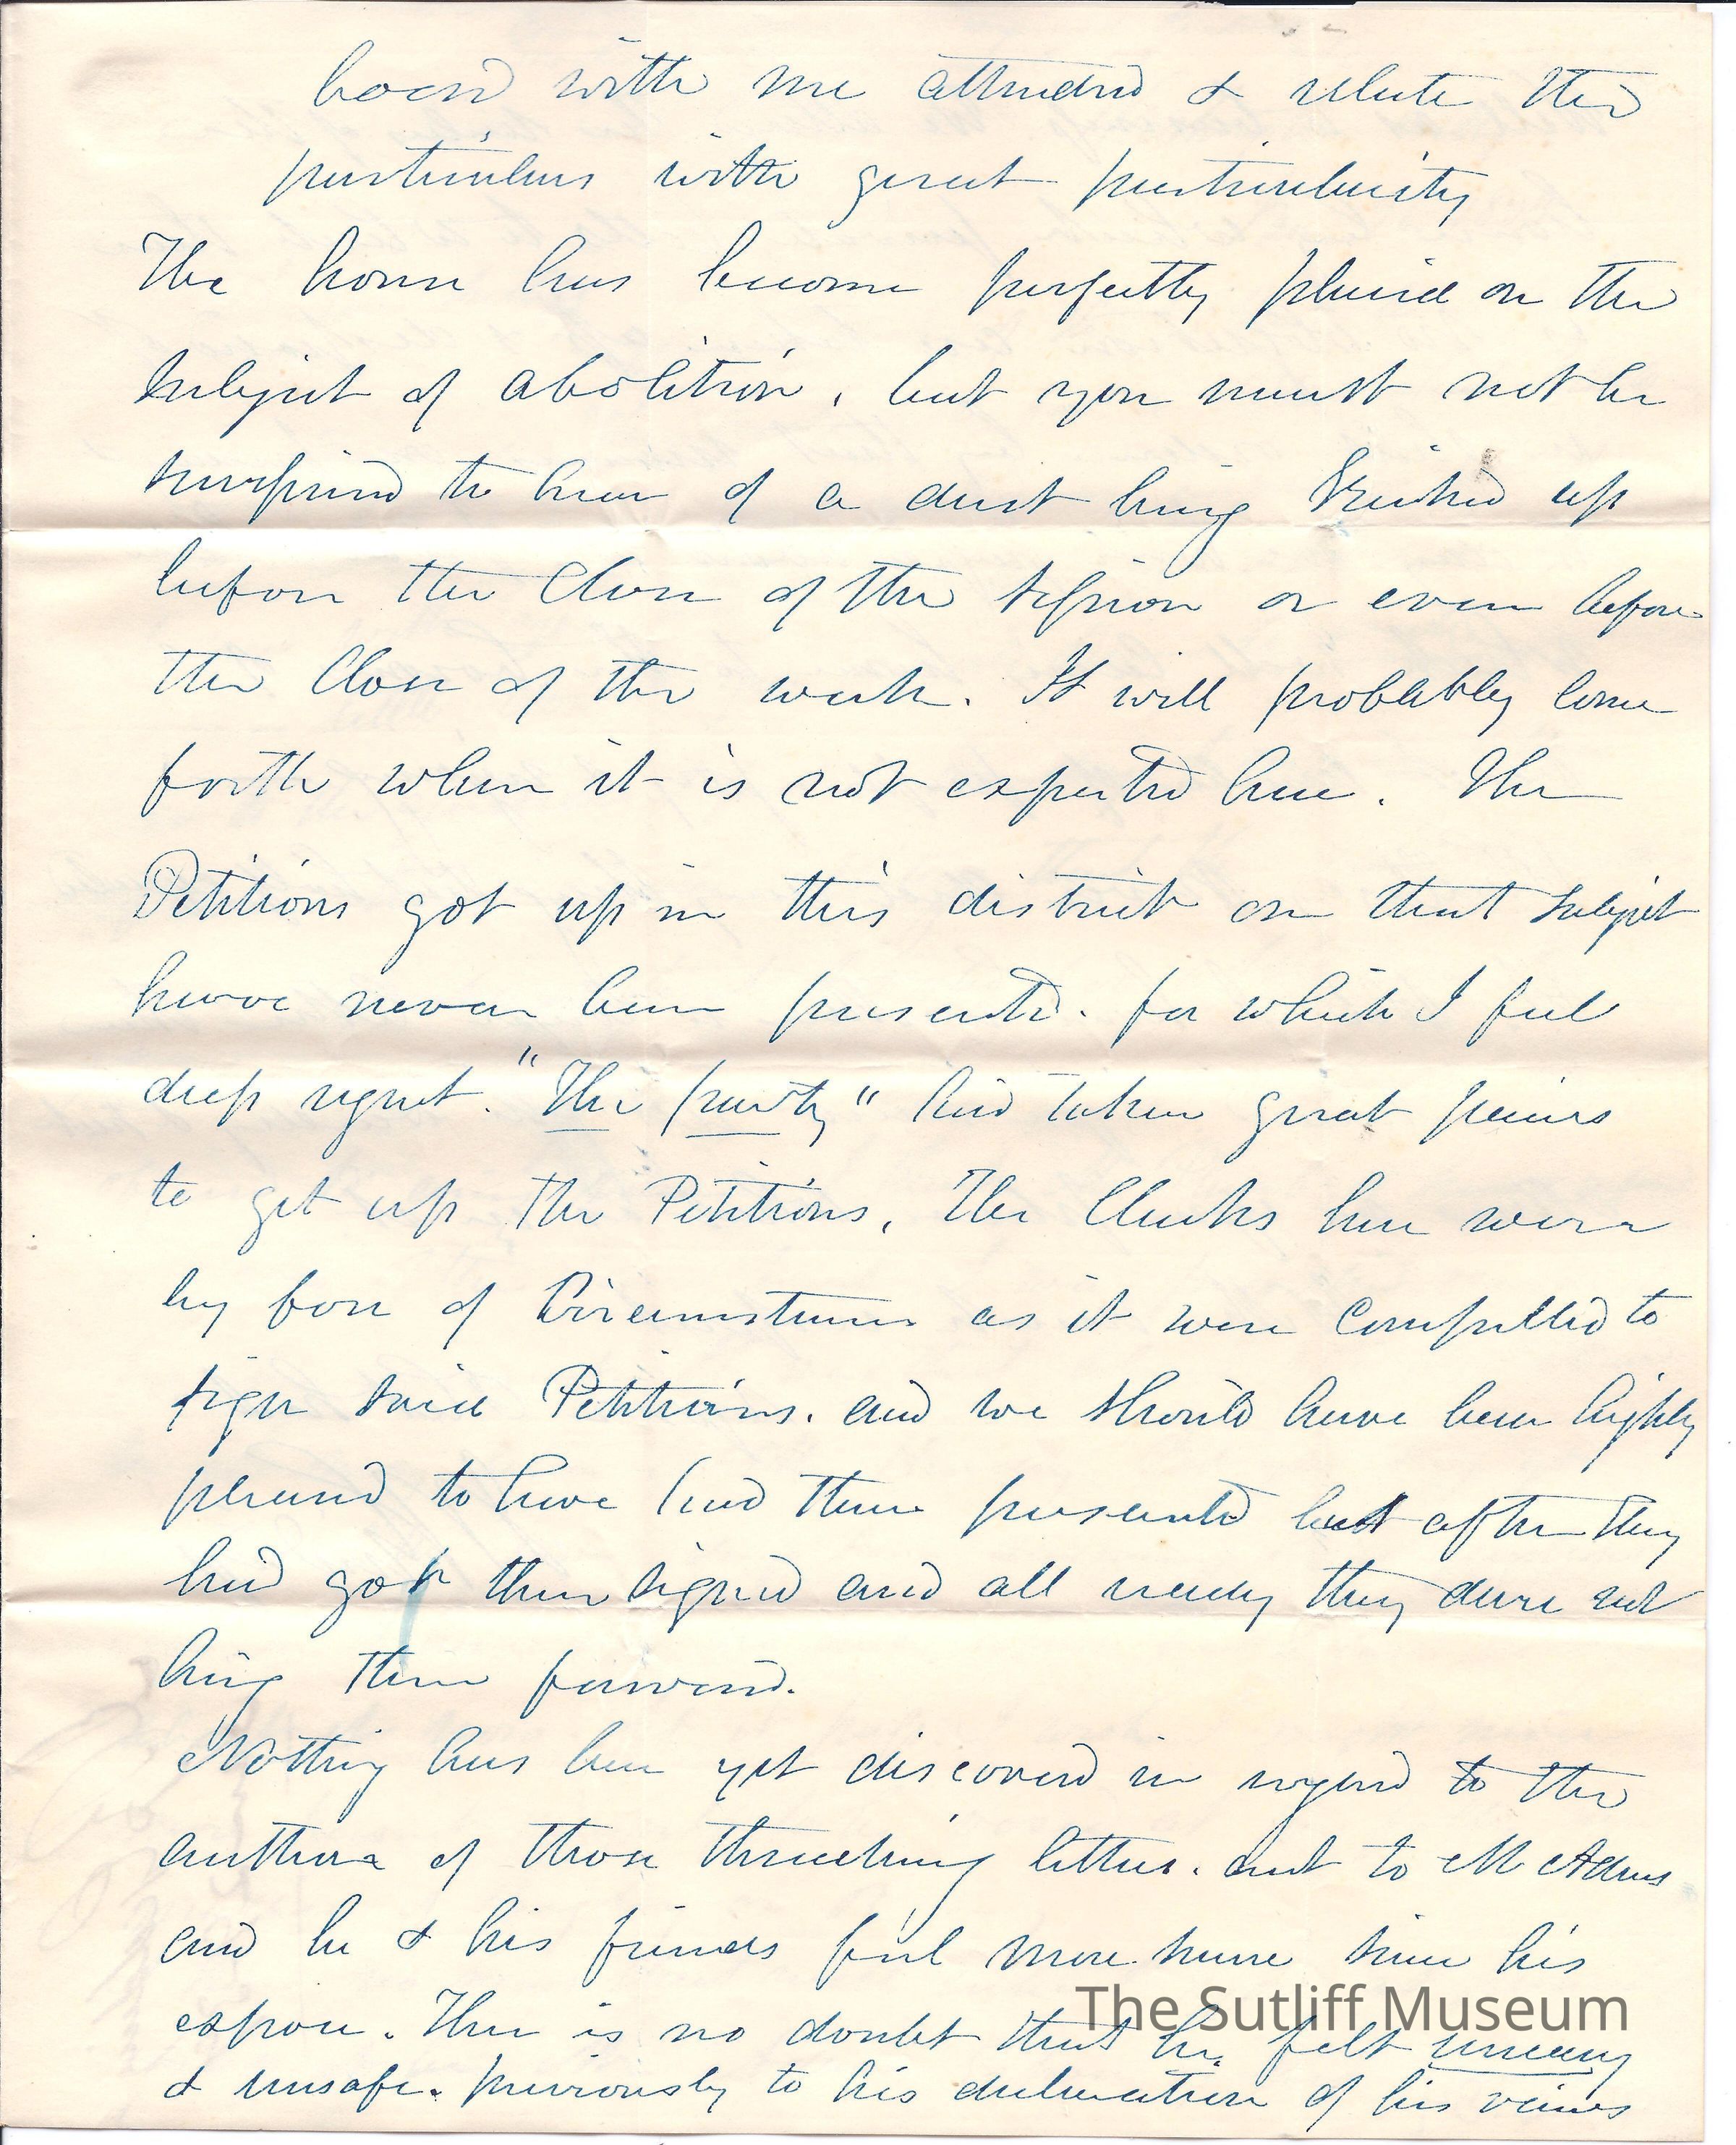 board with me attended & relate the
particulars with great particularity
The house has become perfectly placid on the
subject of abolition, but you must not be
surprised to hear of a dust being kicked up
before the close of the session or even before
the close of the week. It will probably come
forth when it is not expected here. The
Petitions got up in this district on that subject
have never been presented. for which I feel
deep regret. "The party" had taken great pains
to get up the Petitions, The Clerks here were
by force of Circumstances as it were compelled to
sign said Petitions. and we should have been highly
pleased to have had them presented but after they
had got them signed and all ready they dare not
bring them forward.
Nothing has been yet discovered in regard to the
authors of those threatening letters. sent to Mr Adams
and he & his friends feel more secure since his
expose. There is no doubt that he felt uneasy
& unsafe. previously to his declaration of his views
The Sutliff Museum